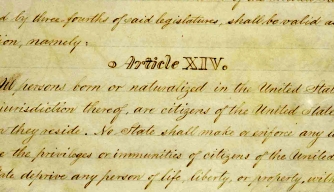 d by three-fourths of said legislatures, shall be valid as
ion, namely:
Article XIV.
persons born or naturalized in the United Stat
jurisdiction thereof, are citizens of the United State
they reside. No State shall make or enforce any
the privileges or immunities of citizens of the United
deprive any person of life, liberty, or property, with